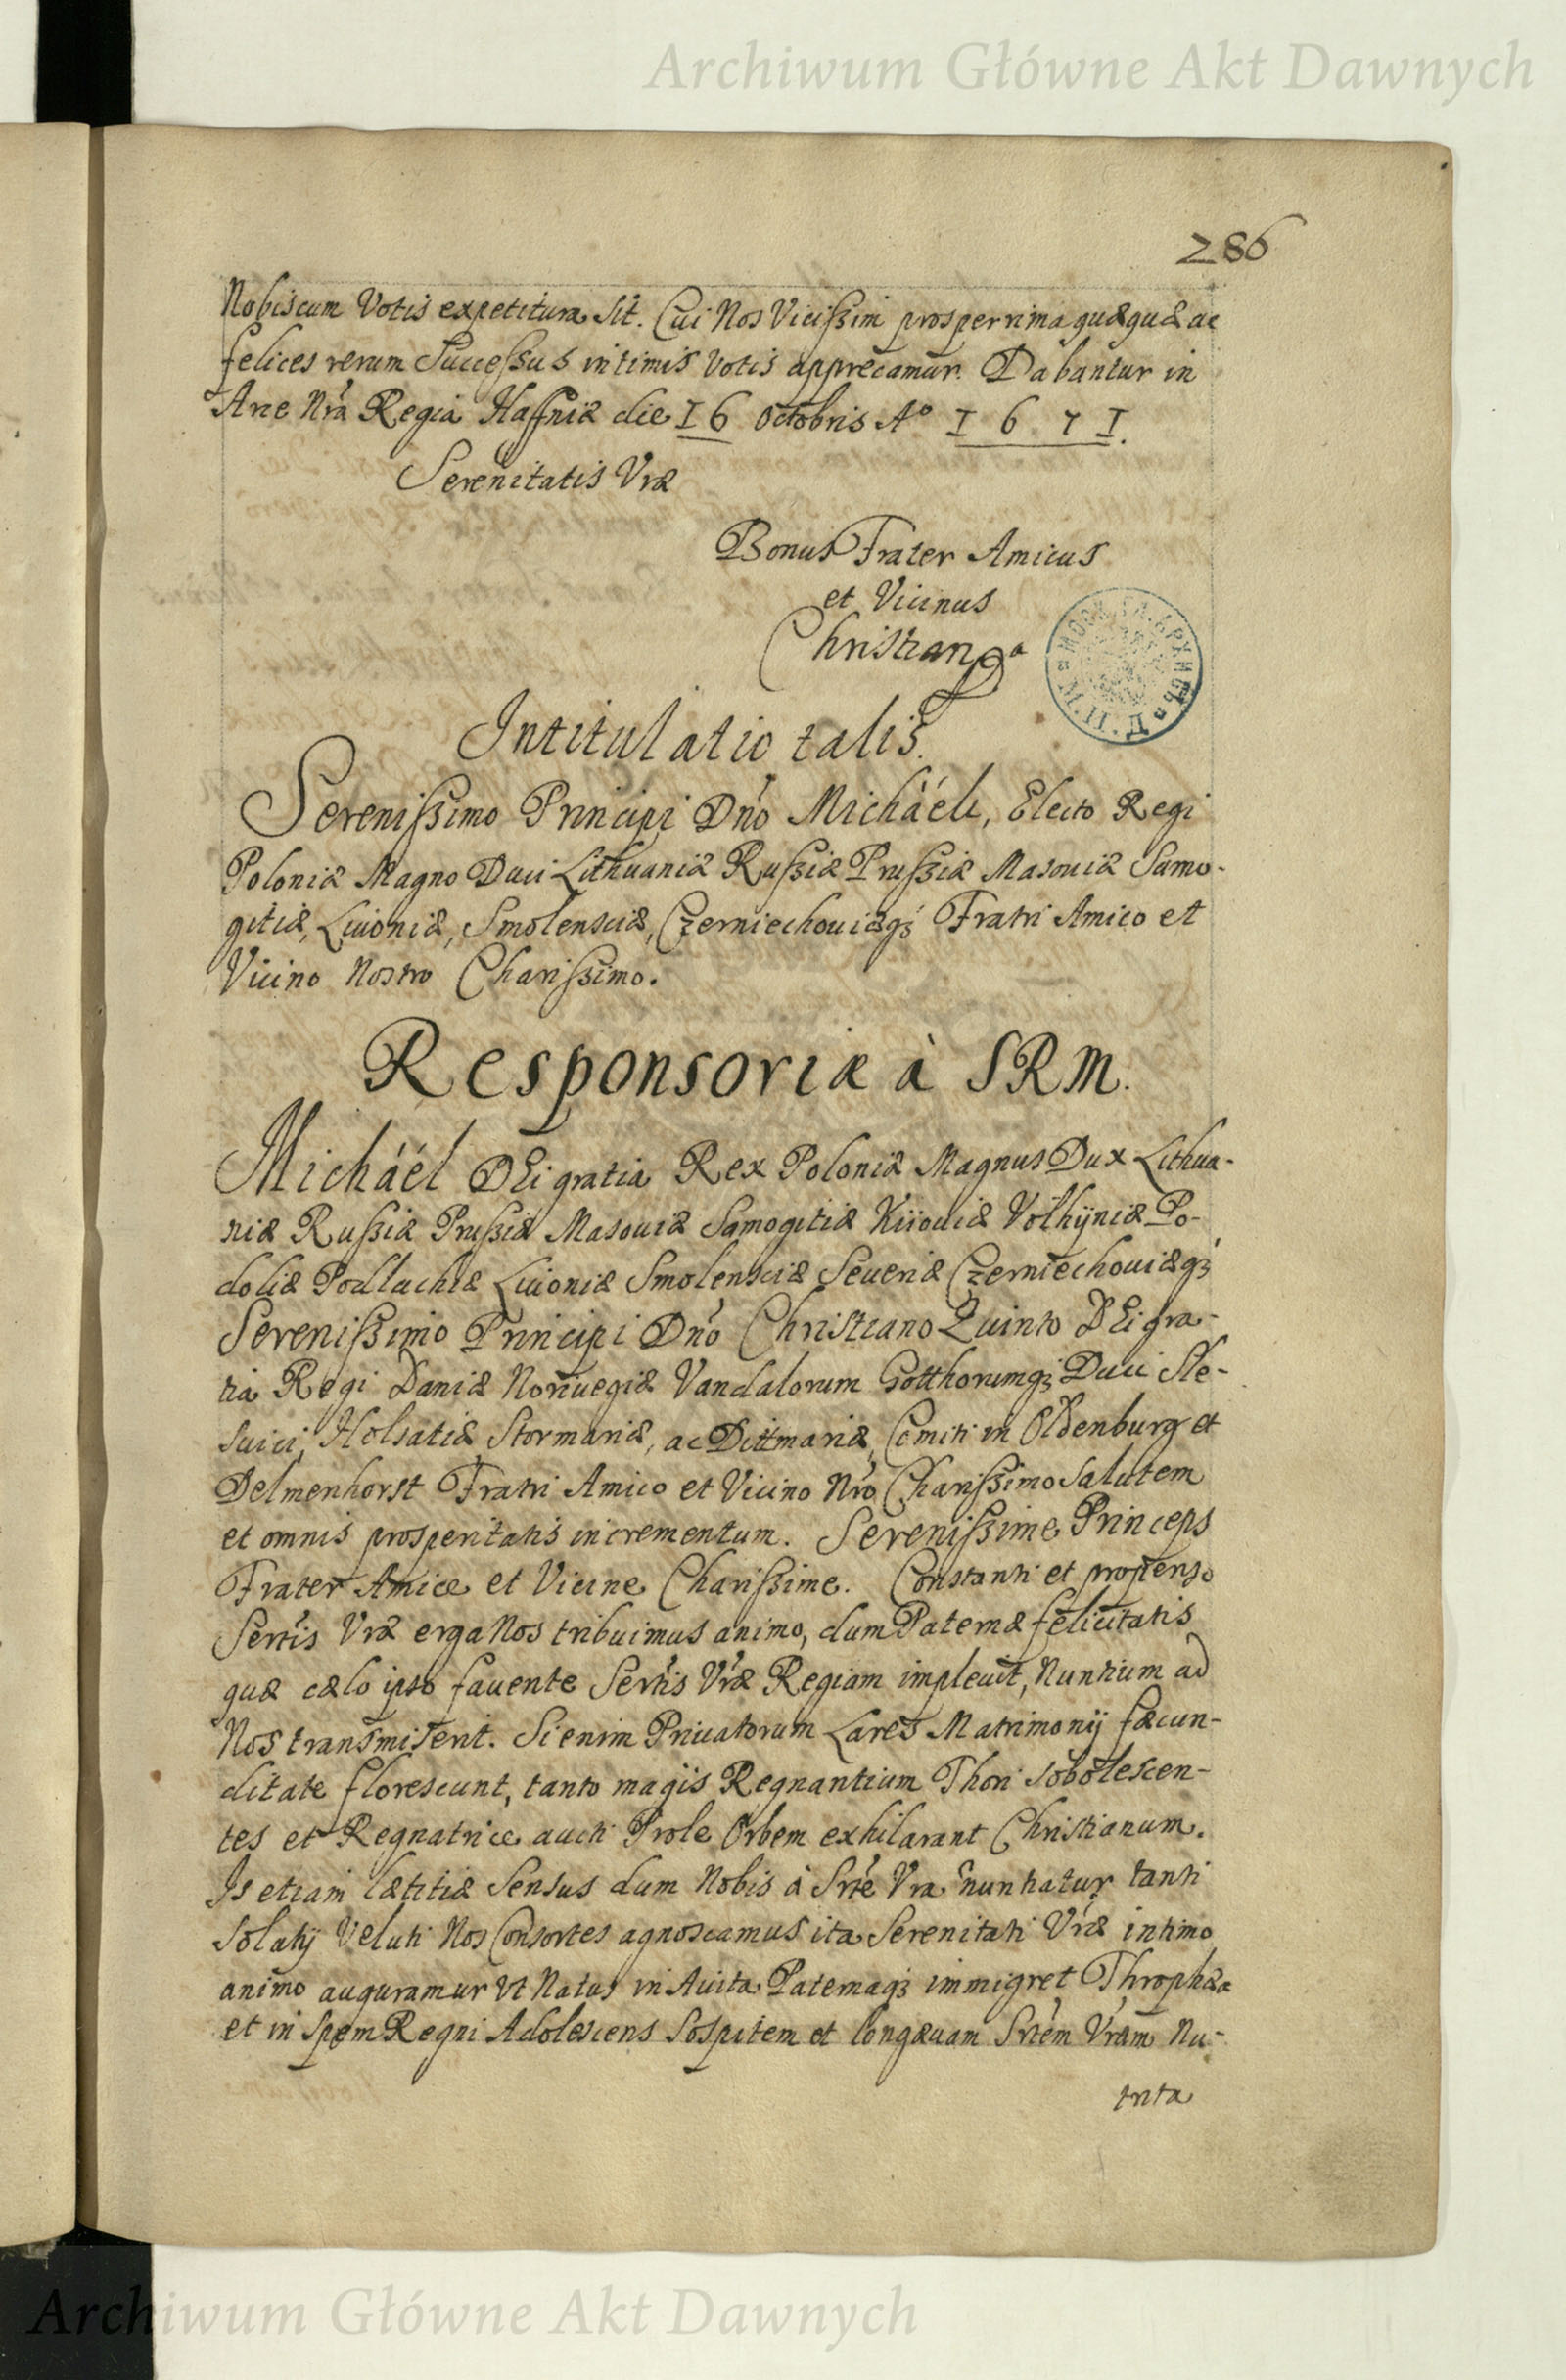 Archiwum Główne Akt Dawnych
286
Nobiscum Votis expetitura sit. Cui Nos Vicißim prosperrima quæquæ ac
felices rerum Succeßus intimis Votis apprecamur. Dabantur in
Arce Nrã Regia Haffniæ die 16 Octobris Aº 1671.
Serenitatis Vræ
Bonus Frater Amicus
et Vicinus
Christian
Intitulatio talis.
Serenißimo Principi Dño Micháéli, Electo Regi
Poloniæ Magno Duci Lithuaniæ Rußiæ Prußiæ Masouiæ Samo-
gitiæ, Liuoniæ, Smolensciæ, Czerniechouiæq; Fratri Amico et
Vicino Nostro Charißimo.
Responsoriæ à SRM.
Micháél DEi gratia Rex Poloniæ Magnus Dux Lithua-
niæ Rußiæ Prußiæ Masouiæ Samogitiæ Kiiouiæ Volhÿniæ Po-
doliæ Podlachiæ Liuoniæ Smolensciæ Seueriæ Czerniechouiæq;
Serenißimo Principi Dño Christiano Quinto DEi gra-
tia Regi Daniæ Noruegiæ Vandalorum Gotthorumq; Duci Sle-
suici, Holsatiæ Stormariæ, ac Dittmariæ, Comiti in Oldenburg et
Delmenhorst Fratri Amico et Vicino Nrõ Charißimo Salutem
et omnis prosperitatis incrementum. Serenißime Princeps
Frater Amice et Vicine Charißime. Constanti et propenso
Sertis Vræ erga Nos tribuimus animo, dum Paternæ felicitatis
quæ cælo ipso fauente Sertis Vræ Regiam impleuit, Nuntium ad
Nos transmiserit. Si enim Priuatorum Lares Matrimonij fæcun-
ditate florescunt, tanto magis Regnantium Thori sobolescen-
tes et Regnatrice aucti Prole Orbem exhilarant Christianum.
Is etiam lætitiæ Sensus dum Nobis à Srte Vra nuntiatur tanti
solatij Veluti Nos Consortes agnoscamus ita Serenitati Vræ intimo
animo auguramur Vt Natus in Auita Paternaq; immigret Throphæa
et in Spem Regni Adolescens Sospitem et longæuam Srtem Vram Nu-
trita
Archiwum Główne Akt Dawnych